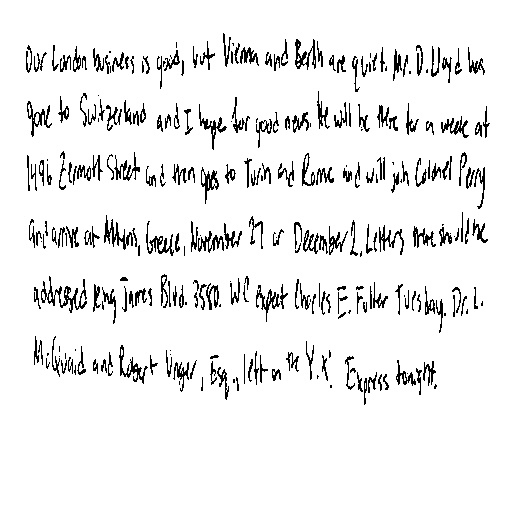 Our London business is good, but Vienna and Berlin are quiet. Mr. D. Lloyd has
gone to Switzerland and I hope for good news. He will be there for a week at
1496 Zermott Street and then goes to Turin and Rome and will join Colonel Perry
and arrive at Athens, Greece, November 27 or December 2. Letters there should be
addressed King James Blvd. 3580. We expect Charles E. Fuller Tuesday. Dr. L.
McQuaid and Robert Unger, Esq., left on the 'Y.X.' Express tonight.